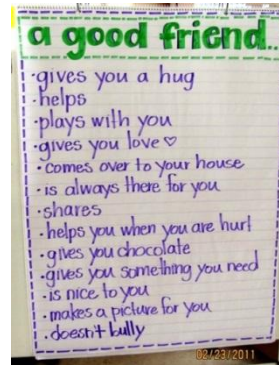 a good friend...
·gives you a hug
·helps
·plays with you
·gives you love♡
·comes over to your house
·is always there for you
·shares
·helps you when you are hurt
·gives you chocolate
·gives you something you need
·is nice to you
·makes a picture for you
·doesn't bully
02/23/2011